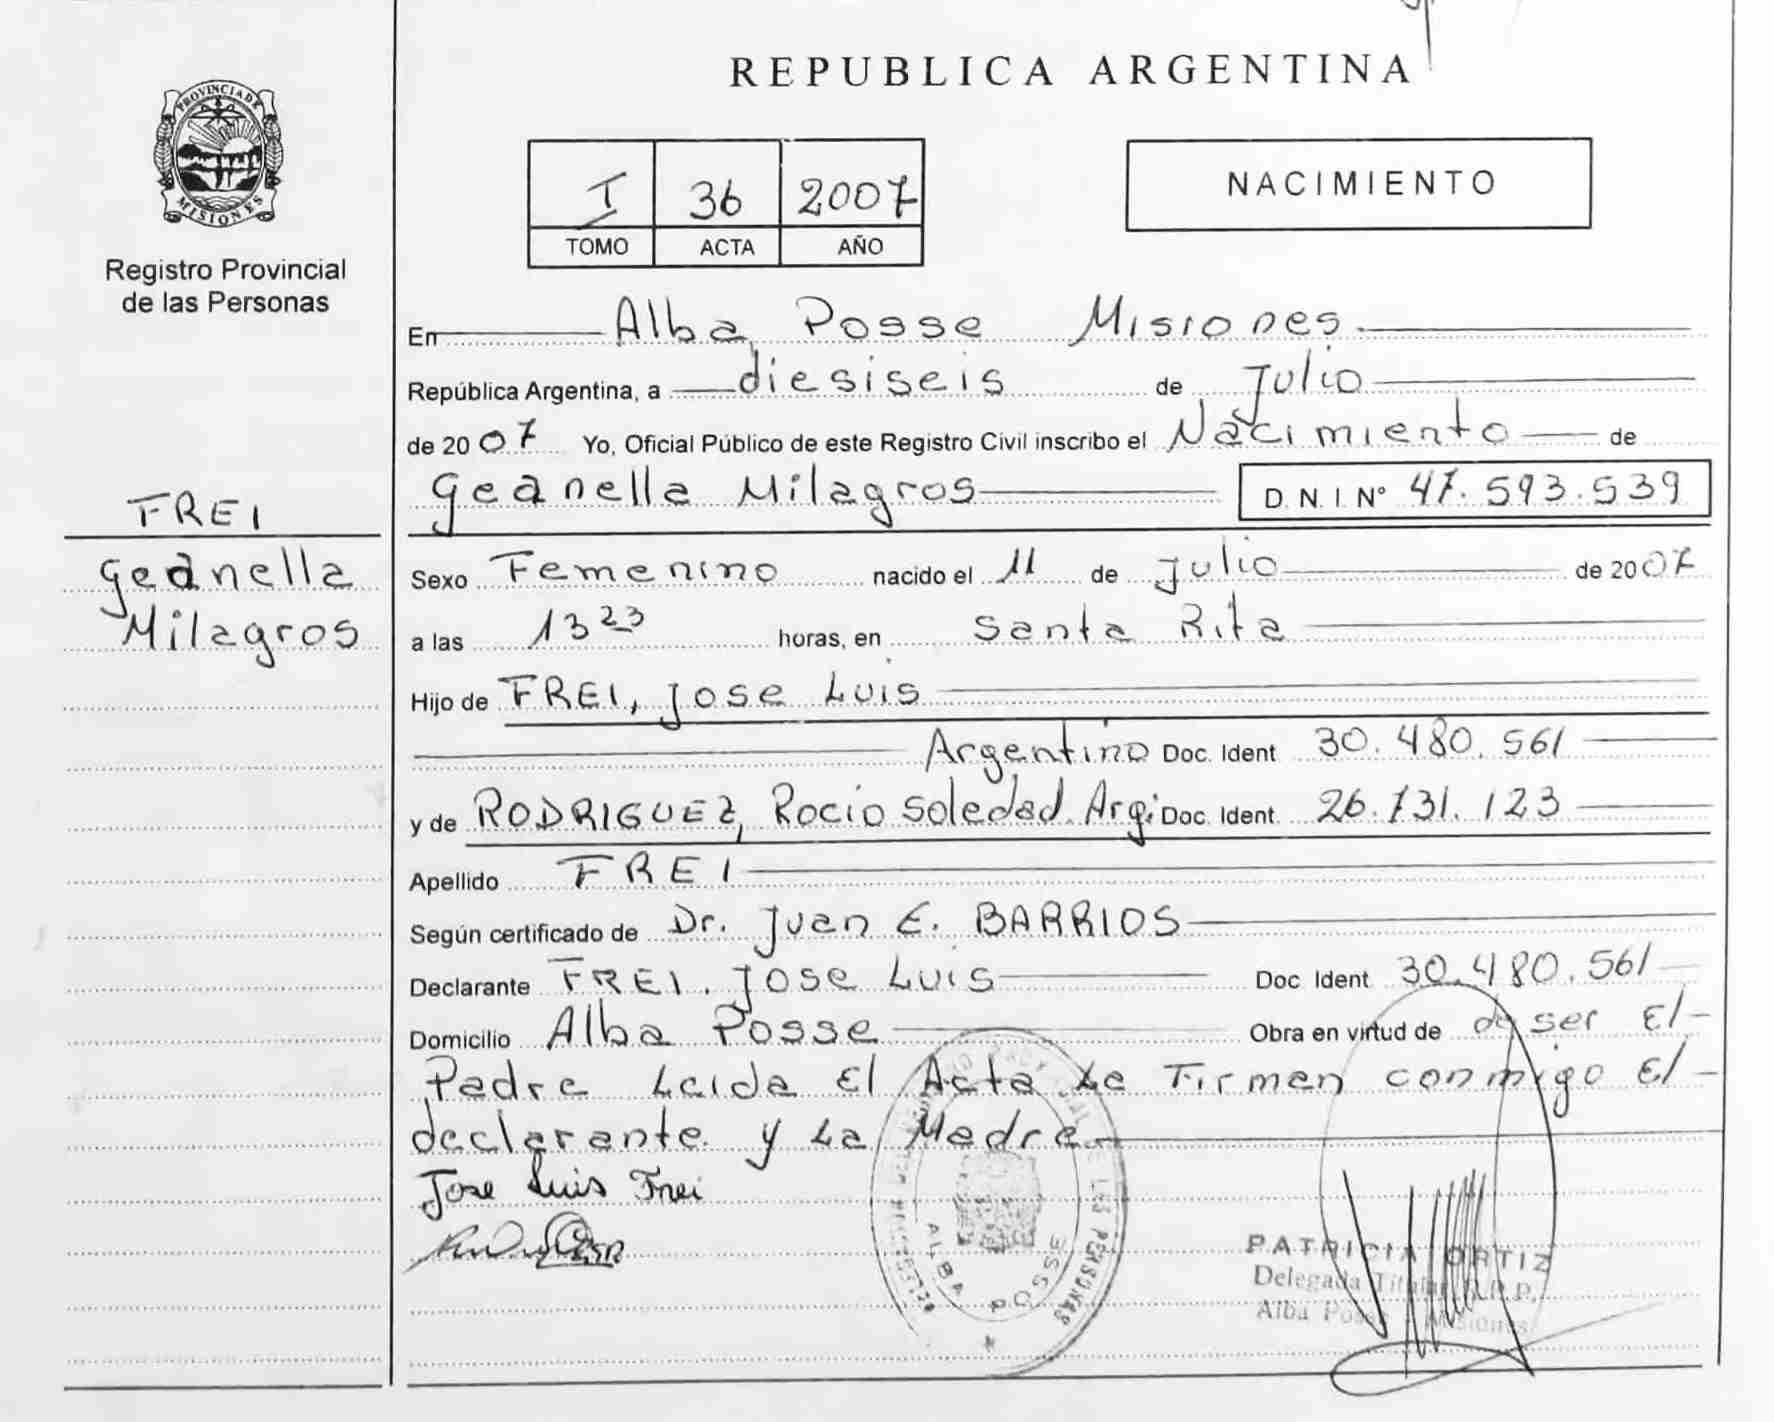 REPUBLICA ARGENTINA
PROVINCIA DE
MISIONES
Registro Provincial
de las Personas
I 36 2007
TOMO ACTA AÑO
NACIMIENTO
En Alba Posse Misiones
República Argentina, a diesiseis de Julio
de 2007 Yo, Oficial Público de este Registro Civil inscribo el Nacimiento de
Geanella Milagros D.N.I.N° 47.593.539
FREI
Geanella
Milagros
Sexo Femenino nacido el 11 de Julio de 2007
a las 13 23 horas, en Santa Rita
Hijo de FREI, Jose Luis
Argentino Doc. Ident 30.480.561
y de RODRIGUEZ, Rocio Soledad Arg. Doc. Ident. 26.731.123
Apellido FREI
Según certificado de Dr. Juan E. BARRIOS
Declarante FREI. Jose Luis Doc Ident 30.480.561
Domicilio Alba Posse Obra en virtud de de ser El
Padre Leida El Acta La Firman conmigo El
declarante y La Madre
Jose Luis Frei
ALBA POSSE
DE LAS PERSONAS
PATRICIA ORTIZ
Delegada Titular R.P.P.
Alba Posse - Misiones